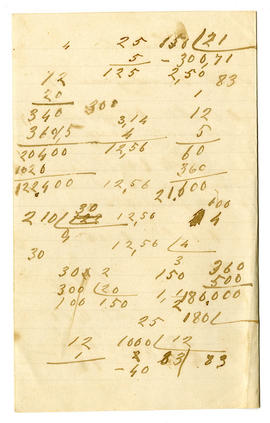 4 25 150 21
5 - 300,71
12 125 2,50 83
20 1
340 300 12
360,5 3,14 5
20400 4 60
1020 12,56 360
122400 12,56 21.600
30 100
210 12,56 4
9
30 12,56 4
3
30 2 150 360
300 20 500
100 150 180,000
25 180
12 1000 12
1 2 83 83
-40